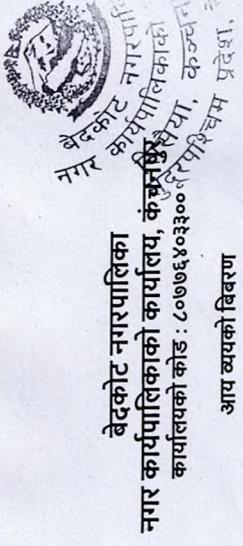 बेदकोट नगरपालिका
नगर कार्यपालिकाको कार्यालय, कंचनपुर
कार्यालयको कोड : ८०७७६४०३३००
आय व्ययको बिबरण
बेदकोट नगरपालिका
नगर कार्यपालिकाको
सुदूरपश्चिम प्रदेश,